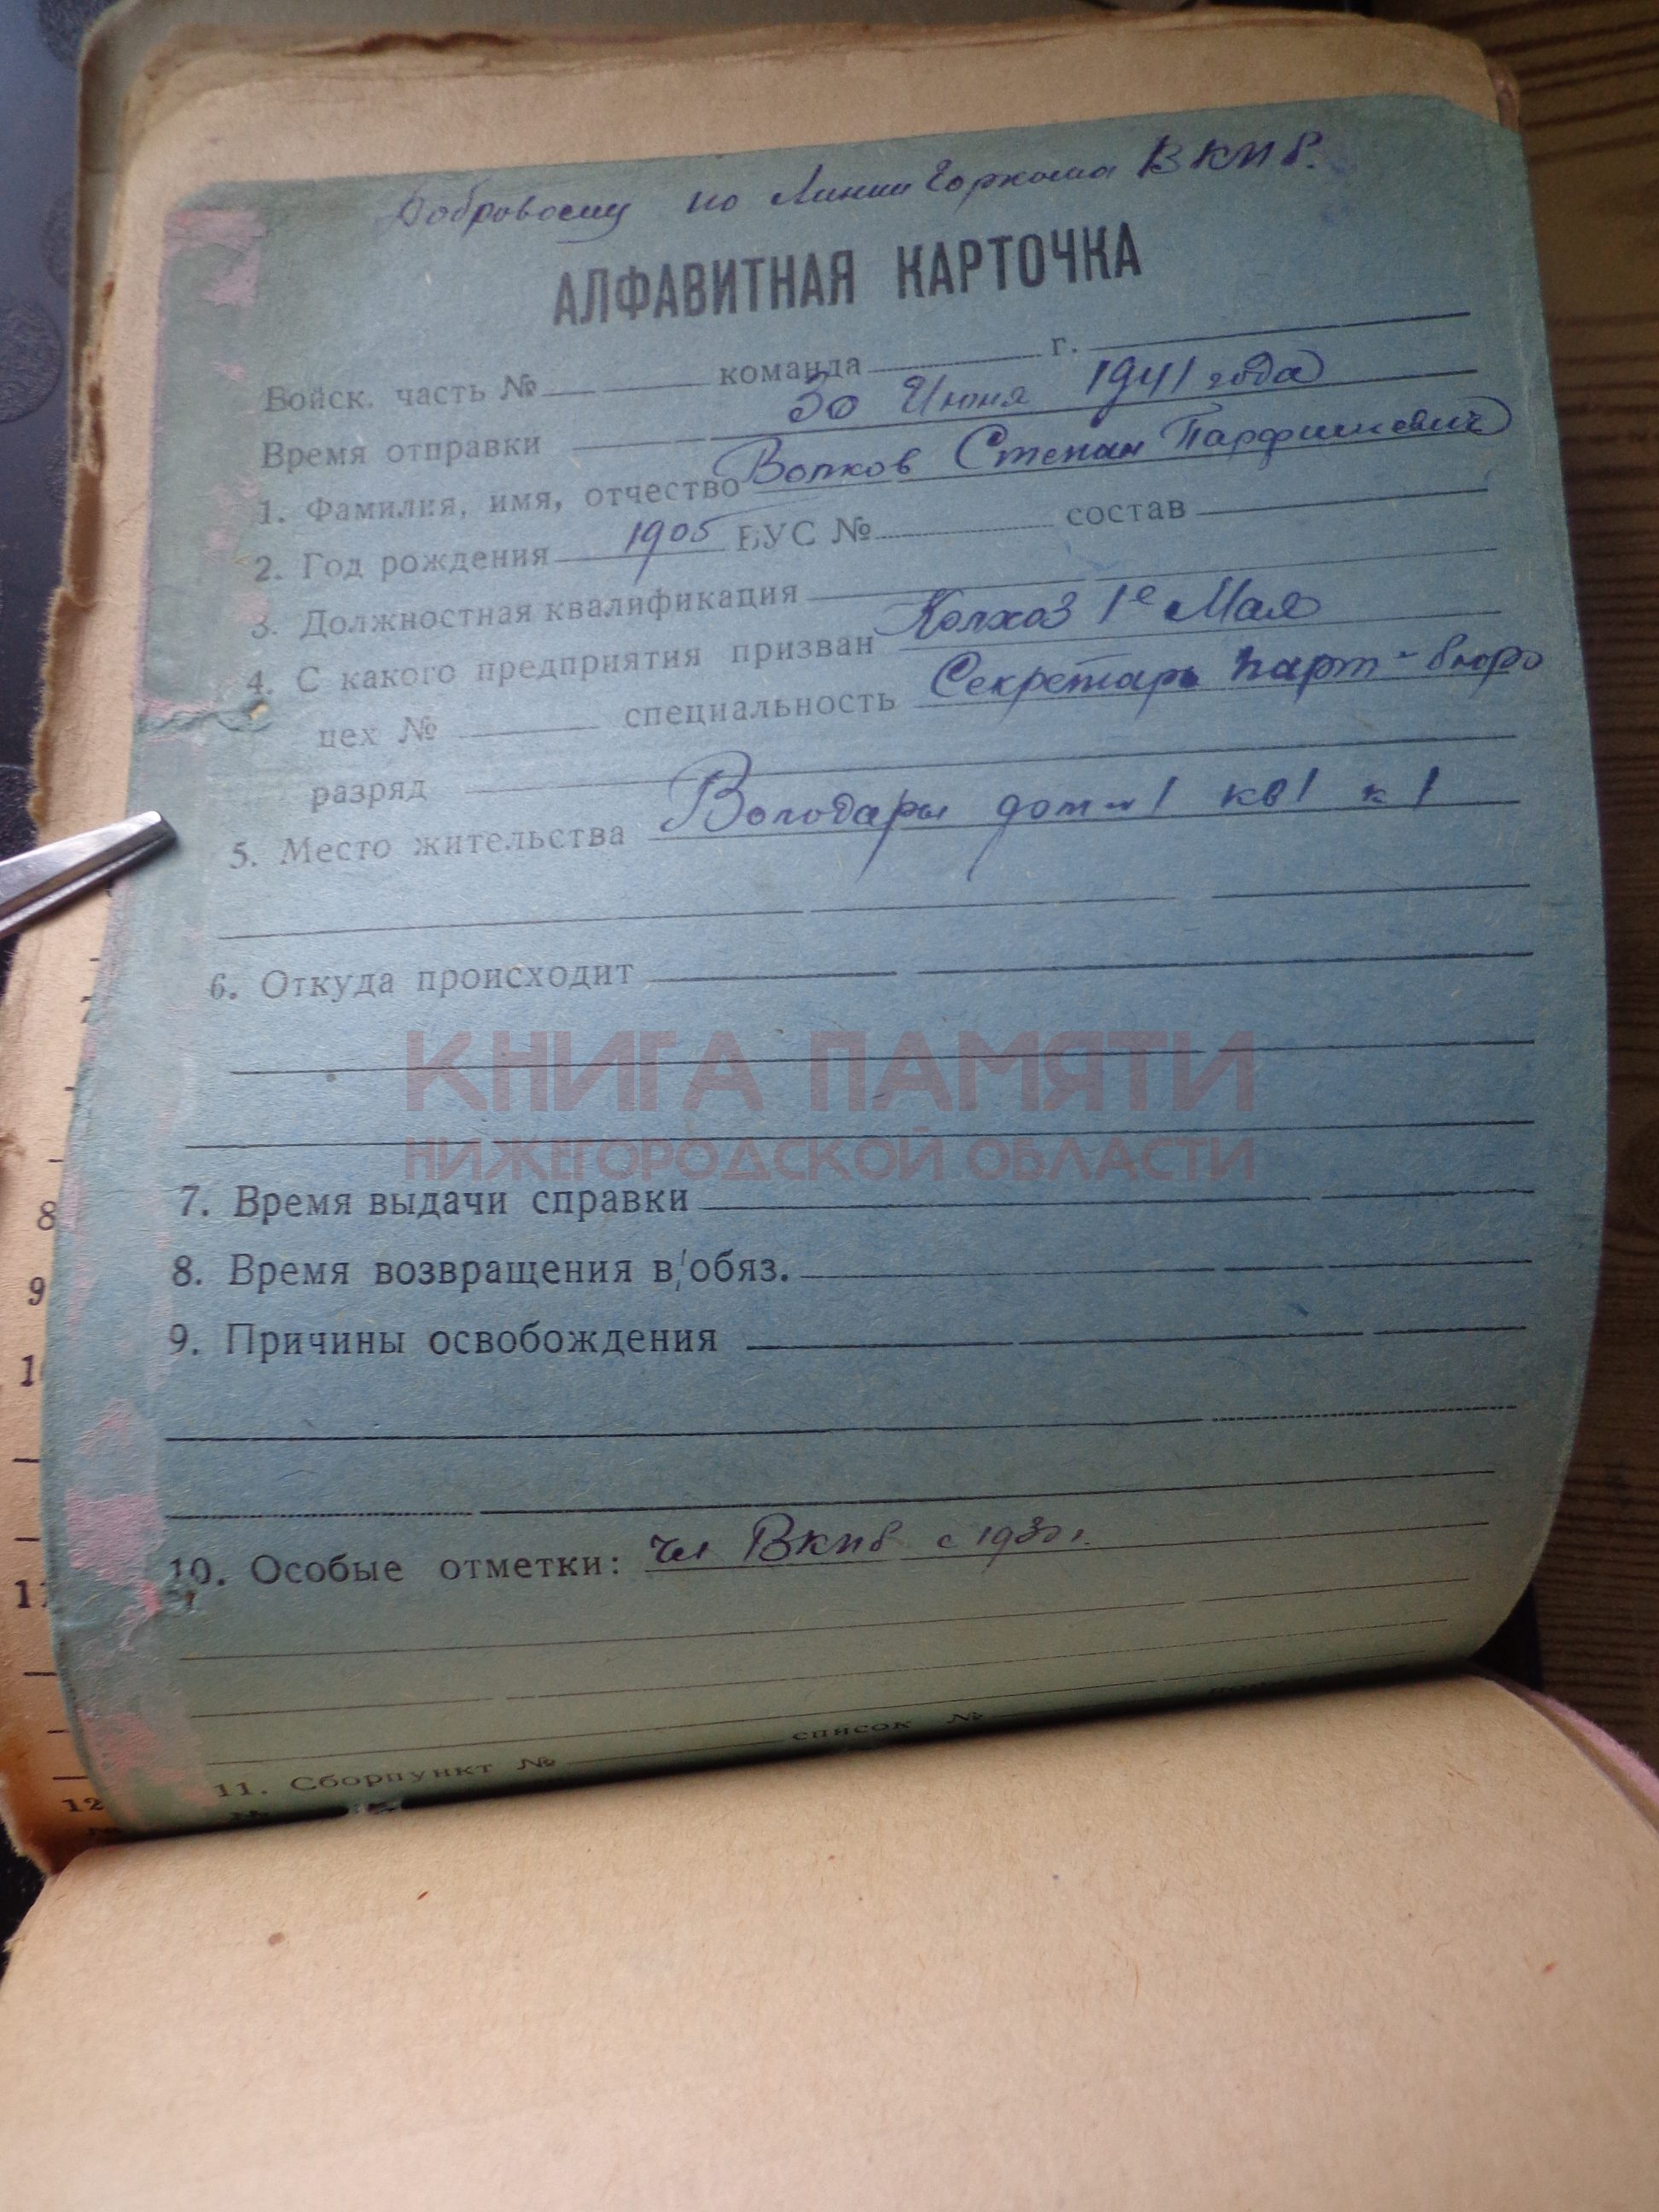 Добровольц по Линии Горкома ВКПб.
АЛФАВИТНАЯ КАРТОЧКА
Войск. часть № команда г.
Время отправки 30 Июня 1941 года
1. Фамилия, имя, отчество Волков Степан Парфишевич
2. Год рождения 1905 ВУС № состав
3. Должностная квалификация
4. С какого предприятия призван Колхоз 1е Мая
цех № специальность Секретарь парт-бюро
разряд
5. Место жительства Володары дом 1 кв 1 к 1
6. Откуда происходит
КНИГА ПАМЯТИ
НИЖЕГОРОДСКОЙ ОБЛАСТИ
7. Время выдачи справки
8. Время возвращения в/обяз.
9. Причины освобождения
10. Особые отметки: чл ВКПб с 1930 г.
11. Сборпункт № список №
8
9
12